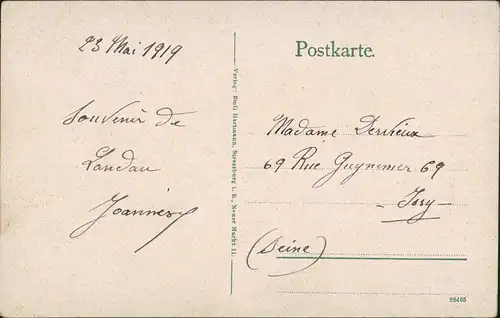 23 Mai 1919
Souvenir de
Landau
Joannès
Postkarte.
Verlag: Emil Hartmann, Strassburg i. E., Neuer Markt 11.
Madame Dervieux
69 Rue Guynemer 69
- Issy -
(Seine)